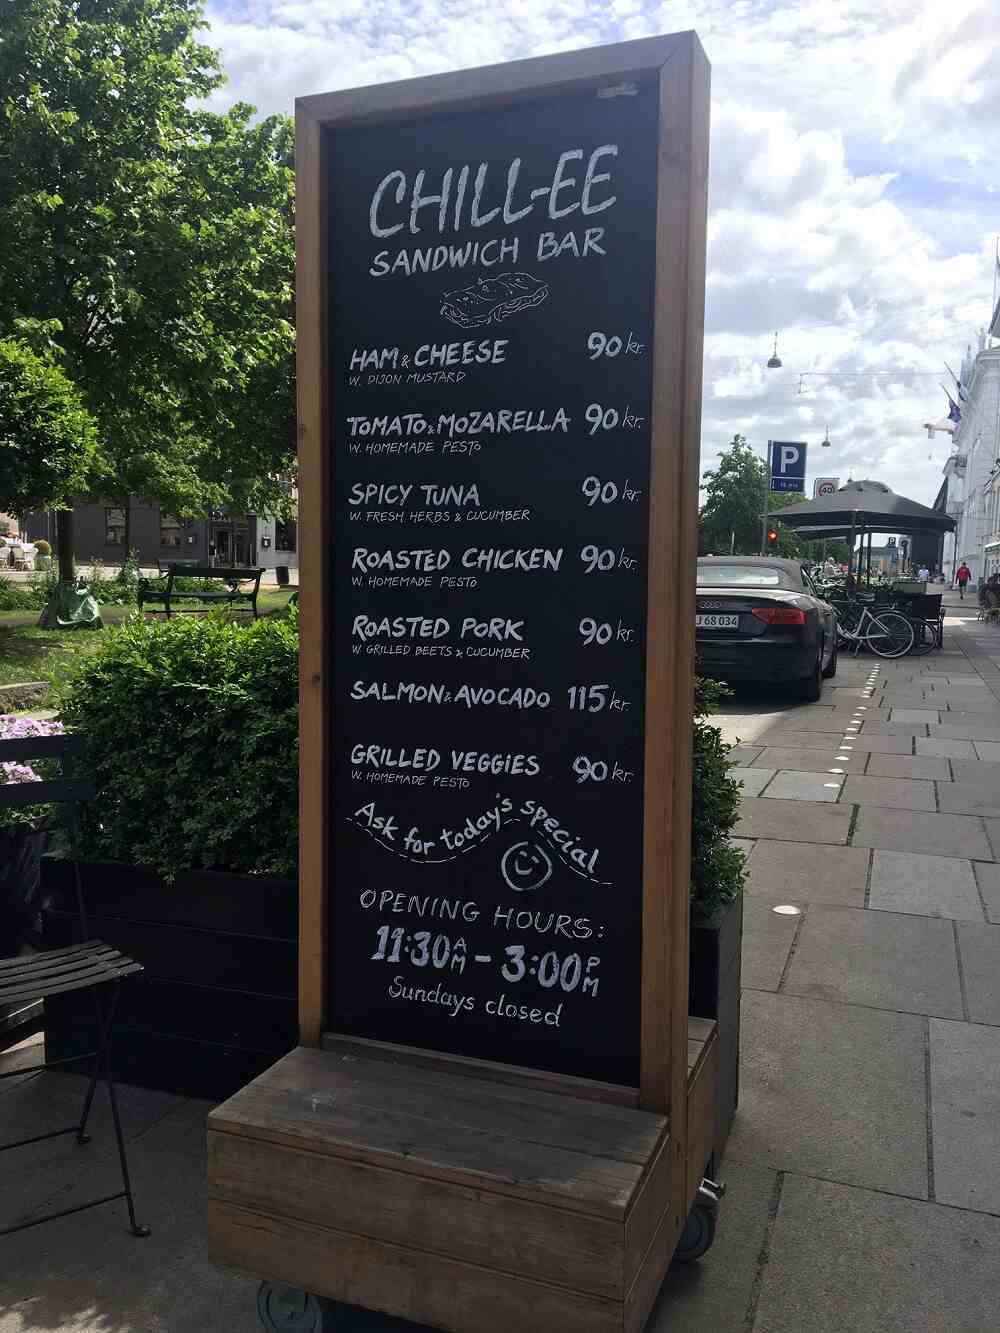 CHILL-EE
SANDWICH BAR
HAM & CHEESE 90 kr.
W. DIJON MUSTARD
TOMATO & MOZARELLA 90 kr.
W. HOMEMADE PESTO
SPICY TUNA 90 kr.
W. FRESH HERBS & CUCUMBER
ROASTED CHICKEN 90 kr.
W. HOMEMADE PESTO
ROASTED PORK 90 kr.
W. GRILLED BEETS & CUCUMBER
SALMON & AVOCADO 115 kr.
GRILLED VEGGIES 90 kr.
W. HOMEMADE PESTO
Ask for today's special
OPENING HOURS:
11:30 AM - 3:00 PM
Sundays closed
P
40
68 034